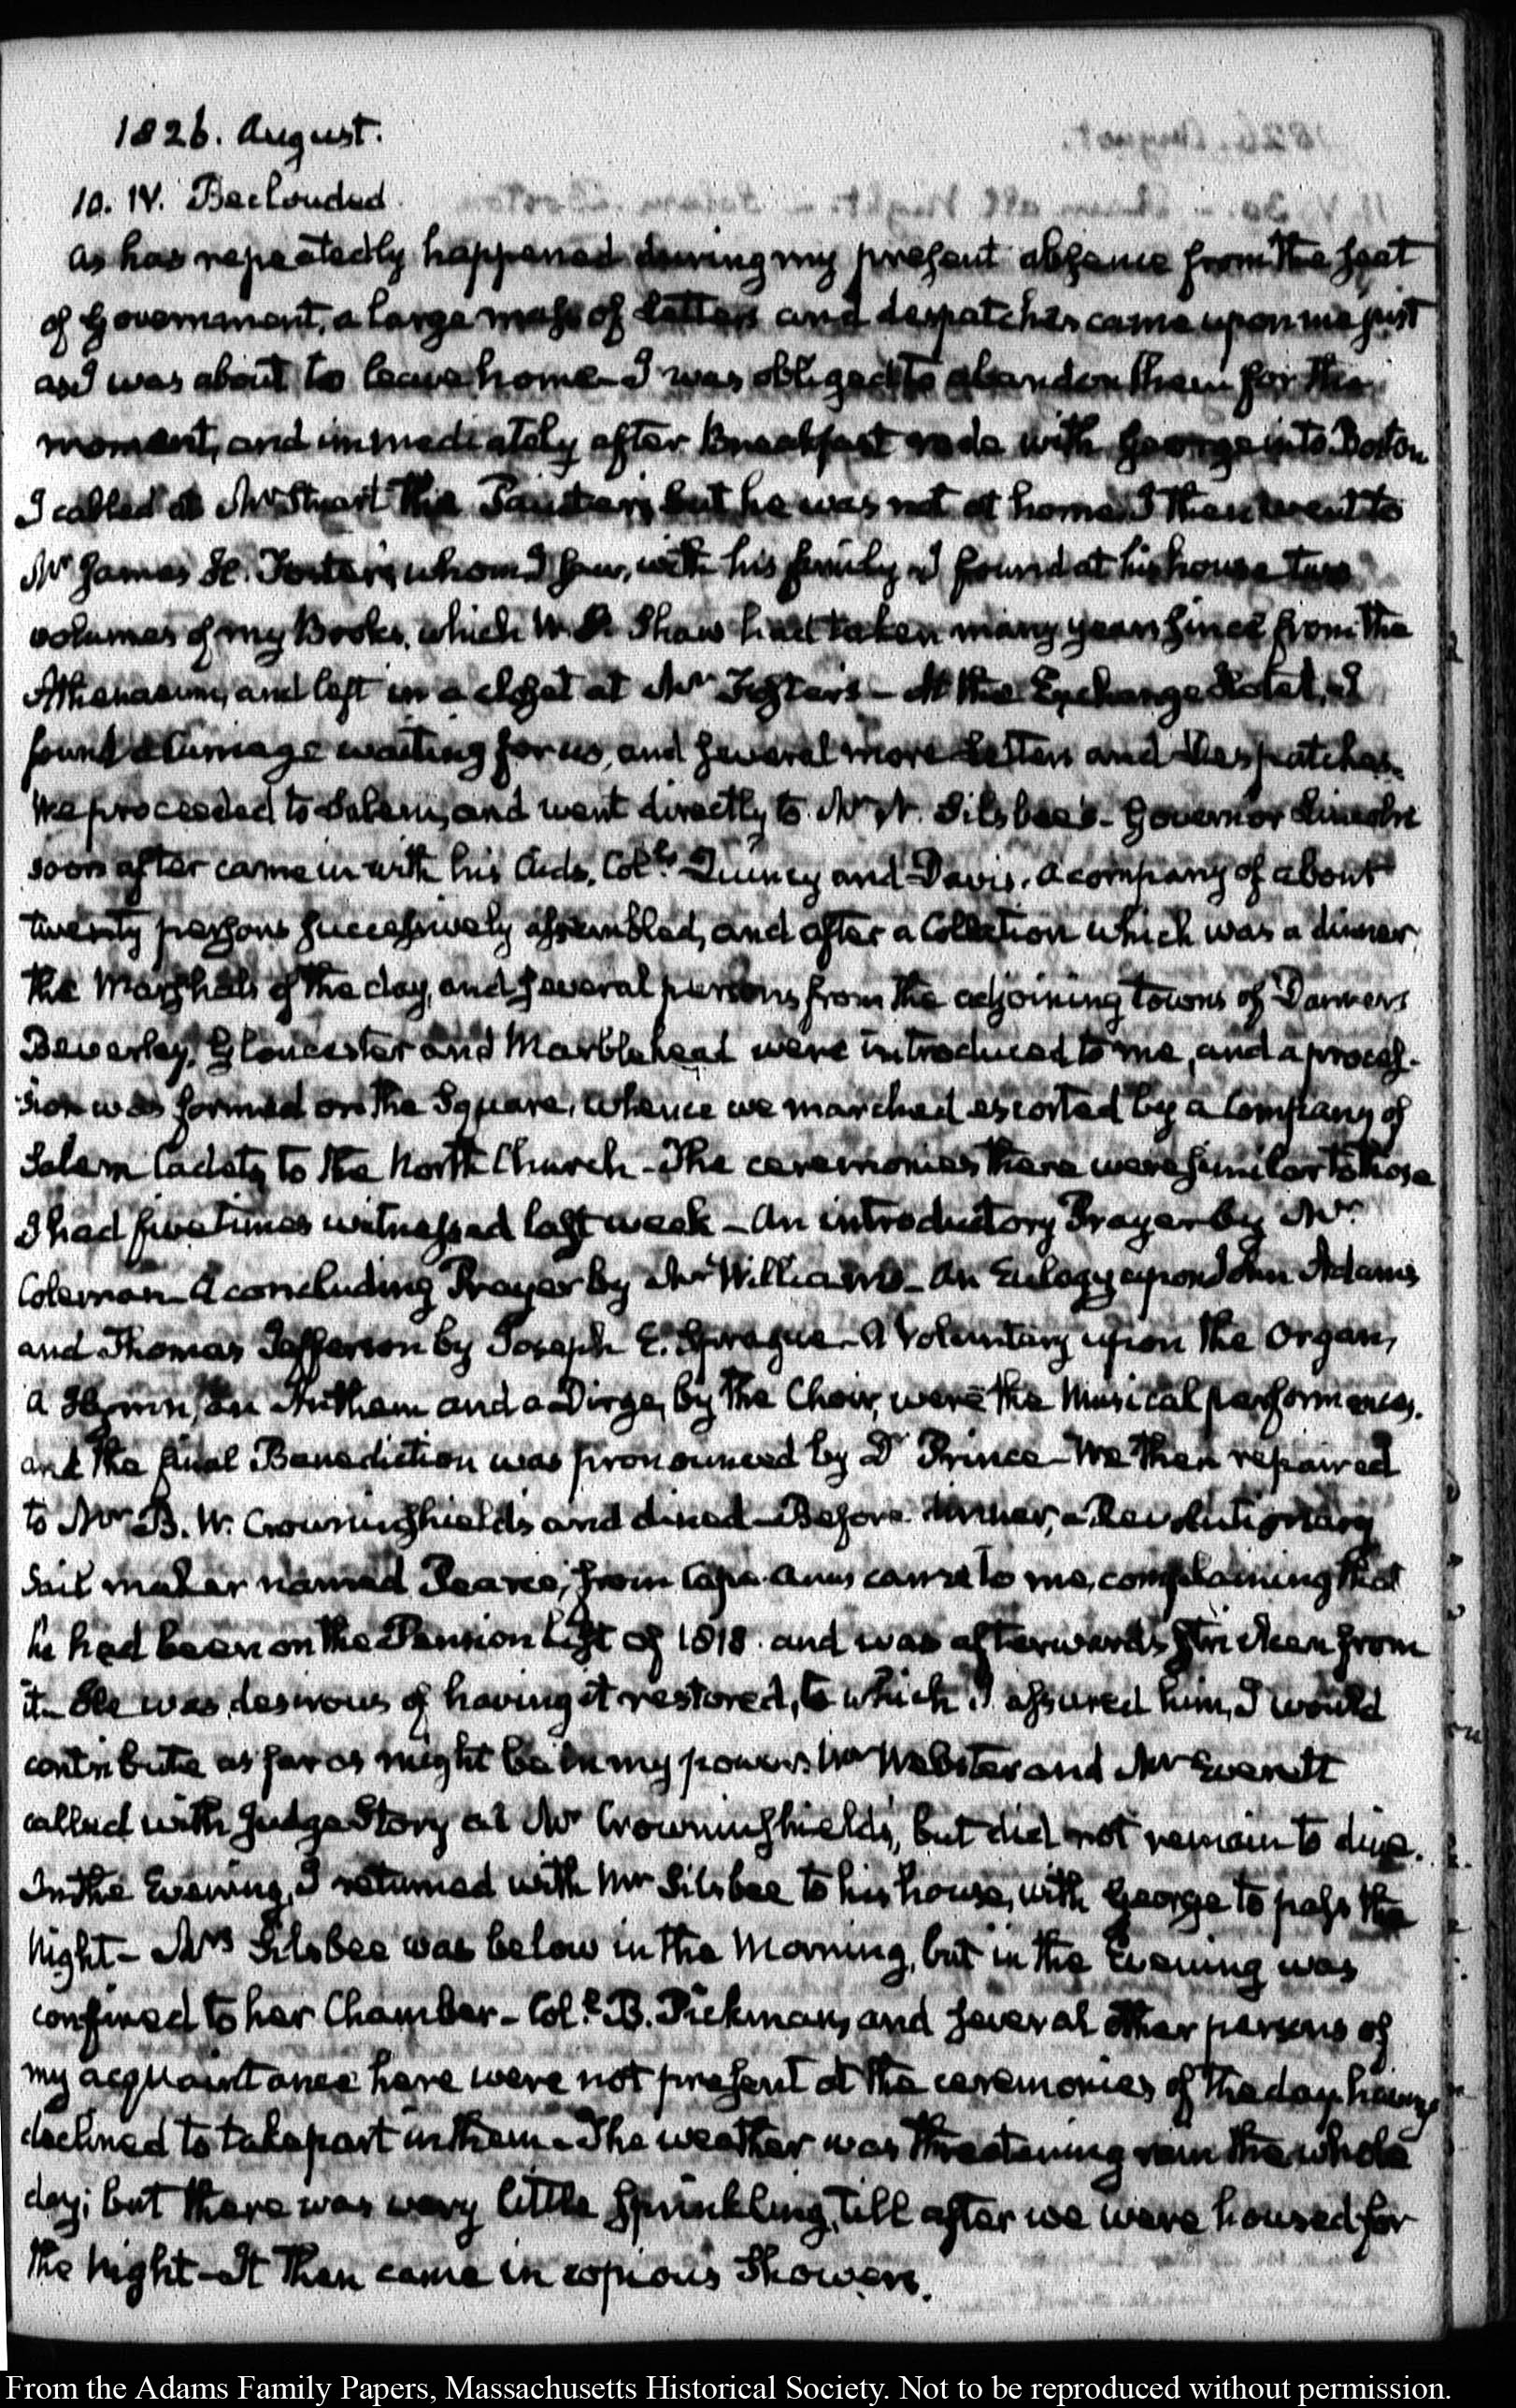 1826. August.
10. IV. Beclouded
As has repeatedly happened during my present absence from the seat
of Government, a large mass of letters and despatches came upon me just
as I was about to leave home. I was obliged to abandon them for the
moment, and immediately after Breakfast rode with George into Boston
I called at Mr Stuart the Painter's, but he was not at home. I then went to
Mr James H. Foster's, whom I saw, with his family. I found at his house two
volumes of my Books, which W. S. Shaw had taken many years since from the
Athenaeum, and left in a closet at Mr Foster's – At the Exchange Hotel, I
found a Carriage waiting for us, and several more Letters and Despatches.
We proceeded to Salem, and went directly to Mr N. Silsbee's – Governor Lincoln
soon after came in with his Aids, Cols. Quincy and Davis. A company of about
twenty persons successively assembled, and after a Collation which was a dinner
the Marshals of the day, and several persons from the adjoining towns of Danvers
Beverley, Gloucester and Marblehead were introduced to me, and a proces-
sion was formed on the Square, whence we marched escorted by a Company of
Salem Cadets, to the North Church – The ceremonies there were similar to those
I had five times witnessed last week – An introductory Prayer by Mr
Coleman – A concluding Prayer by Mr Williams – An Eulogy upon John Adams
and Thomas Jefferson by Joseph E. Sprague – A Voluntary upon the Organ,
a Hymn, an Anthem and a Dirge, by the Choir, were the Musical performances.
and the final Benediction was pronounced by Dr Prince – We then repaired
to Mr B. W. Crowninshield's and dined – Before dinner, a Revolutionary
Sail maker named Pearce, from Cape Ann came to me, complaining that
he had been on the Pension List of 1818. and was afterwards stricken from
it – He was desirous of having it restored, to which I assured him, I would
contribute as far as might be in my power. Mr Webster and Mr Everett
called with Judge Story at Mr Crowninshield's, but did not remain to dine.
In the Evening, I returned with Mr Silsbee to his house, with George to pass the
Night – Mrs Silsbee was below in the Morning, but in the Evening was
confined to her Chamber – Coll. B. Pickman, and several other persons of
my acquaintance here were not present at the ceremonies of the day, having
declined to take part in them. The weather was threatening rain the whole
day; but there was very little sprinkling, till after we were housed for
the Night – It then came in copious Showers.
From the Adams Family Papers, Massachusetts Historical Society. Not to be reproduced without permission.